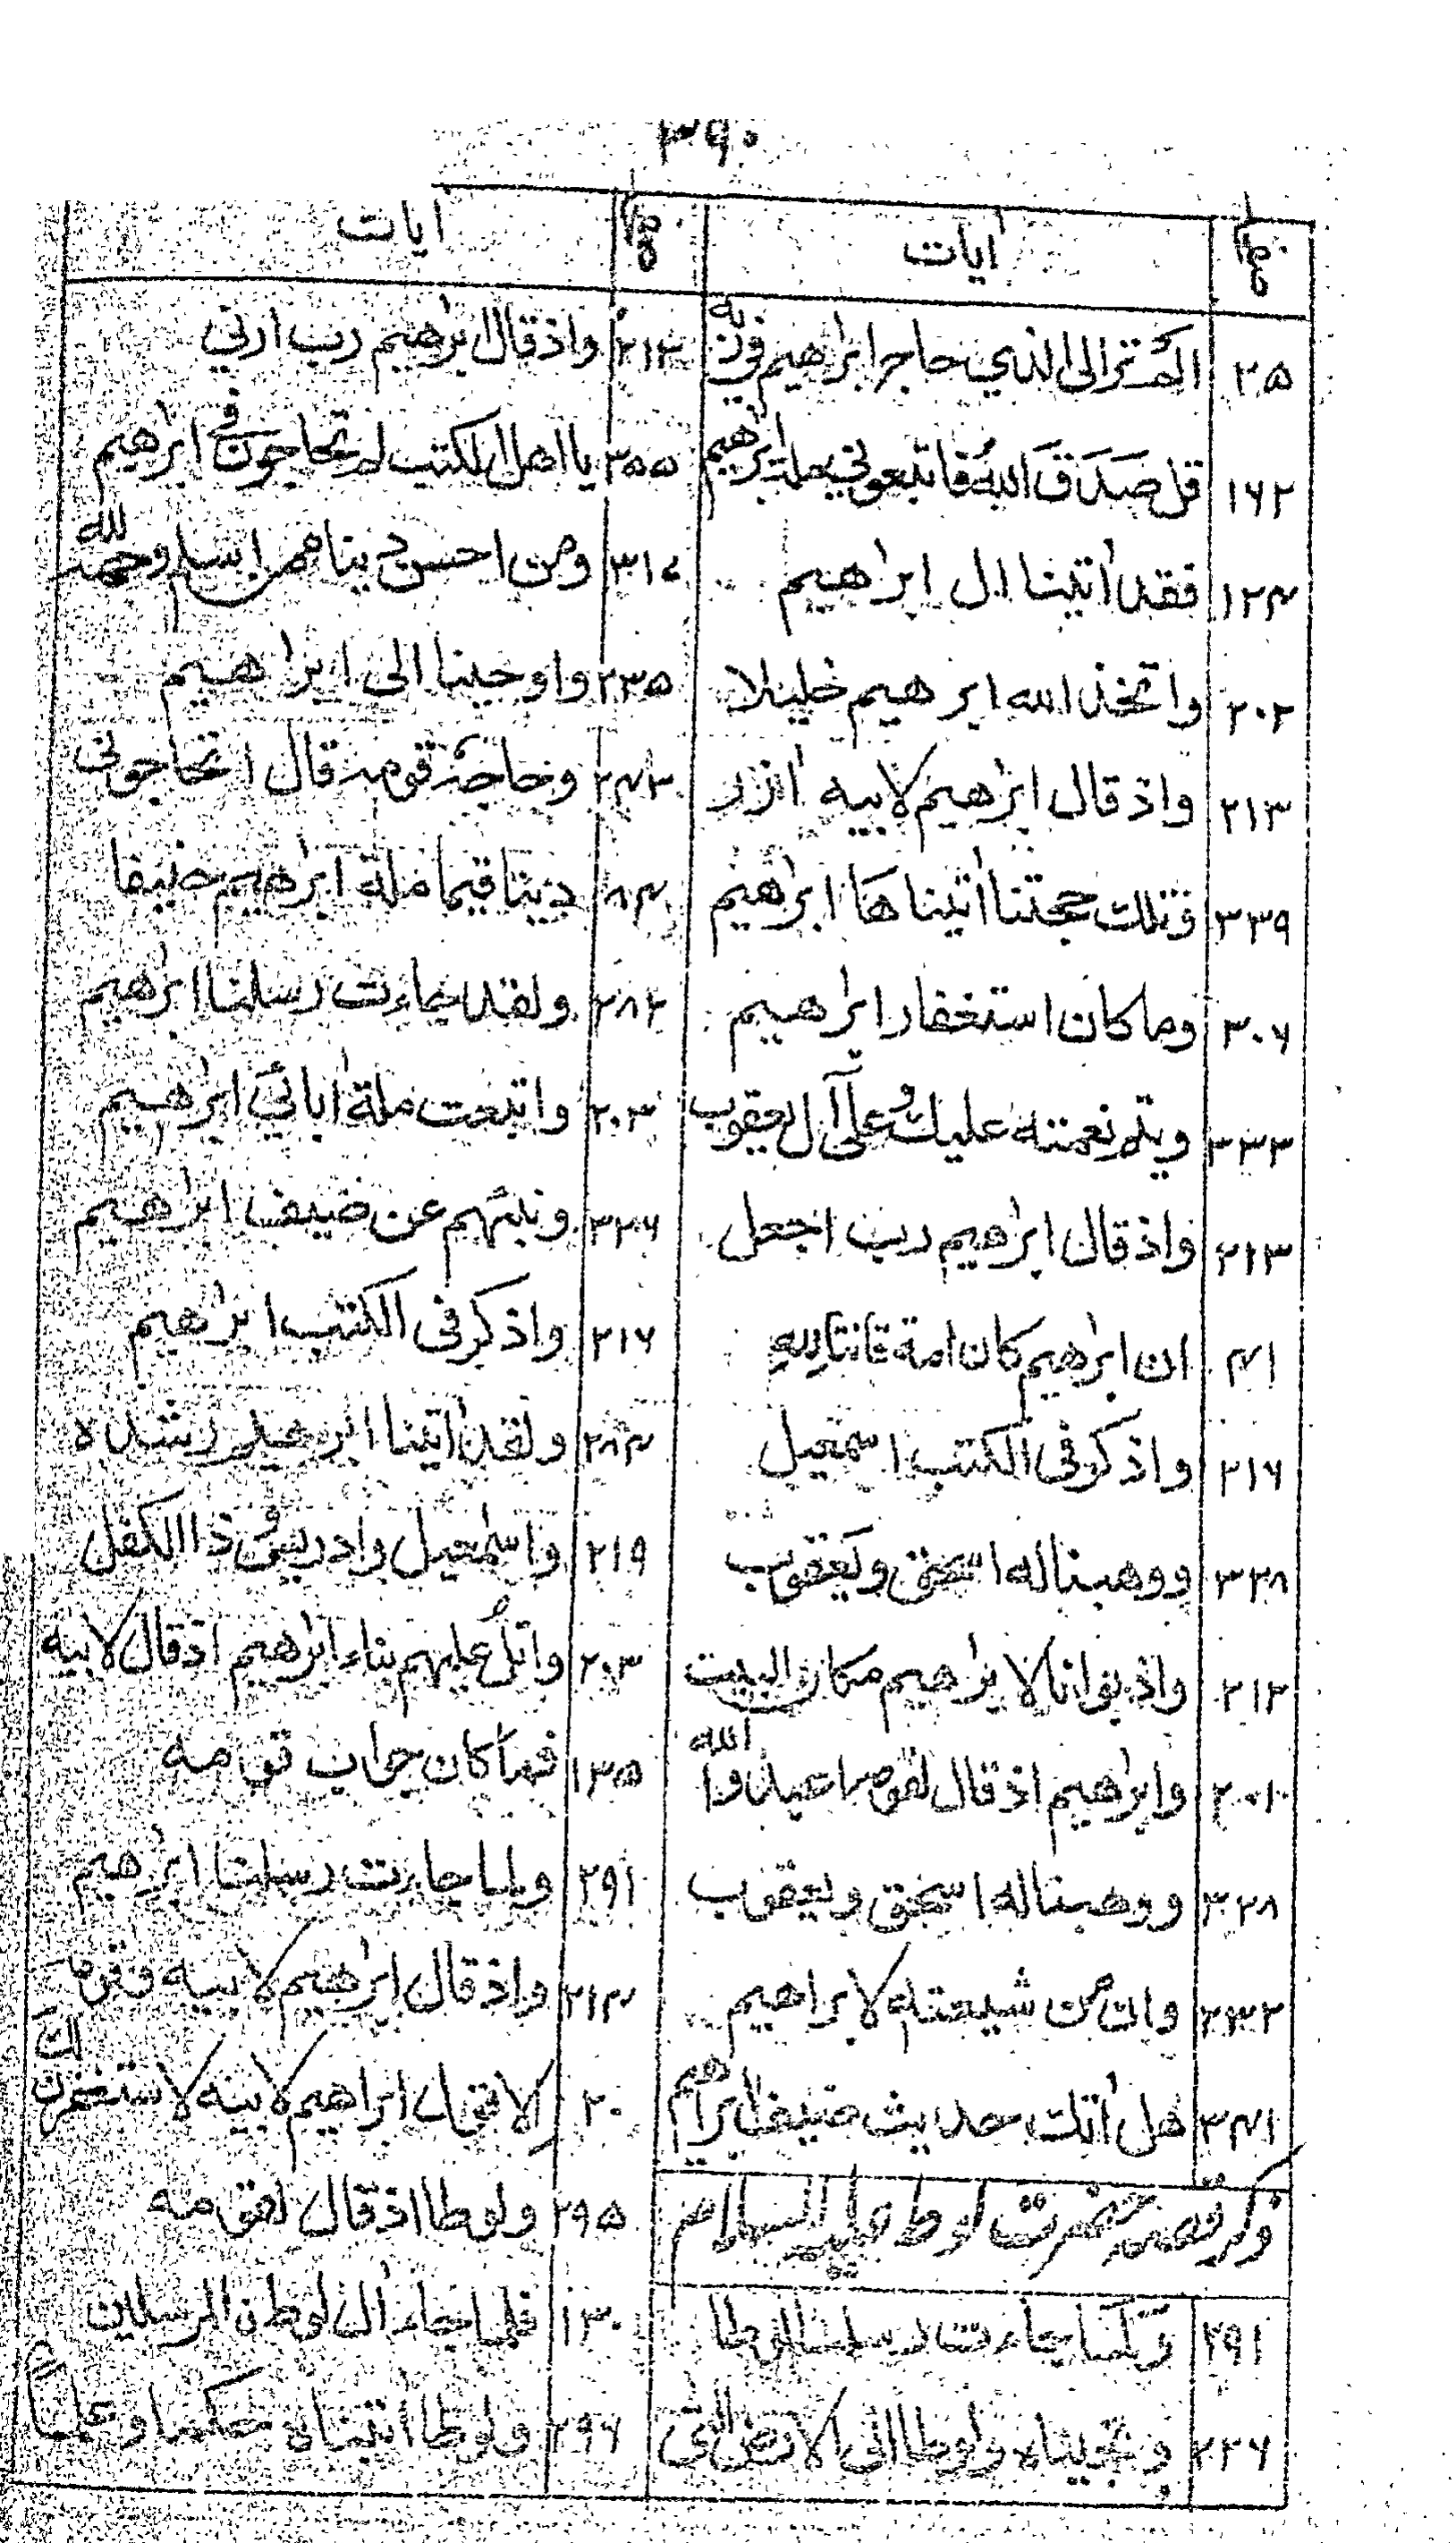 ۳۹۰
صفحہ ایات صفحہ ایات
۲۵ الم تر الى الذي حاج ابراهيم في ربه ۲۱۲ واذ قال ابرهيم رب ارني
۱۶۲ قل صدق الله فاتبعوني ملة ابرهيم ۳۵۵ يا اهل الكتب لم تحاجون في ابراهيم
۱۲۴ فقد اتينا ال ابراهيم ۳۱۷ ومن احسن دينا ممن اسلم وجهه لله
۲۰۲ واتخذ الله ابرهيم خليلا ۲۳۵ واوحينا الى ابراهيم
۲۱۳ واذ قال ابرهيم لابيه ازر ۲۴۲ وحاجه قومه قال اتحاجوني
۳۳۹ وتلك حجتنا اتيناها ابرهيم ۸۴ دينا قيما ملة ابرهيم حنيفا
۳۰۶ وما كان استغفار ابرهيم ۲۸۲ ولقد جاءت رسلنا ابرهيم
۳۳۳ ويتم نعمته عليك وعلى آل يعقوب ۲۰۳ واتبعت ملة ابائي ابرهيم
۲۱۳ واذ قال ابرهيم رب اجعل ۳۲۶ ونبئهم عن ضيف ابرهيم
۴۱ ان ابرهيم كان امة قانتا لله ۲۱۶ واذكر في الكتب ابرهيم
۲۱۶ واذكر في الكتب اسمعيل ۲۸۴ ولقد اتينا ابرهيم رشده
۳۲۸ ووهبنا له اسحق ويعقوب ۲۱۹ واسمعيل وادريس وذا الكفل
۲۱۲ واذ بوانا لابرهيم مكان البيت ۲۰۳ واتل عليهم نباء ابرهيم اذ قال لابيه
۲۰۱ وابرهيم اذ قال لقومه اعبدوا الله ۱۳۵ فما كان جواب قومه
۳۲۸ ووهبنا له اسحق ويعقوب ۲۹۱ ولما جاءت رسلنا ابرهيم
۲۳۲ وان من شيعته لابراهيم ۲۱۴ واذ قال ابرهيم لابيه وقومه
۳۴۱ هل اتك حديث ضيف ابراهيم ۲۰ الا قول ابراهيم لابيه لاستغفرن لك
ذكر قصه حضرت لوط عليه السلام ۲۹۵ ولوطا اذ قال لقومه
۲۹۱ ولما جاءت رسلنا لوطا ۱۳۰ فلما جاء ال لوط المرسلين
۲۲۶ ونجيناه ولوطا الى الارض التي ۲۹۶ ولوطا اتيناه حكما وعلما